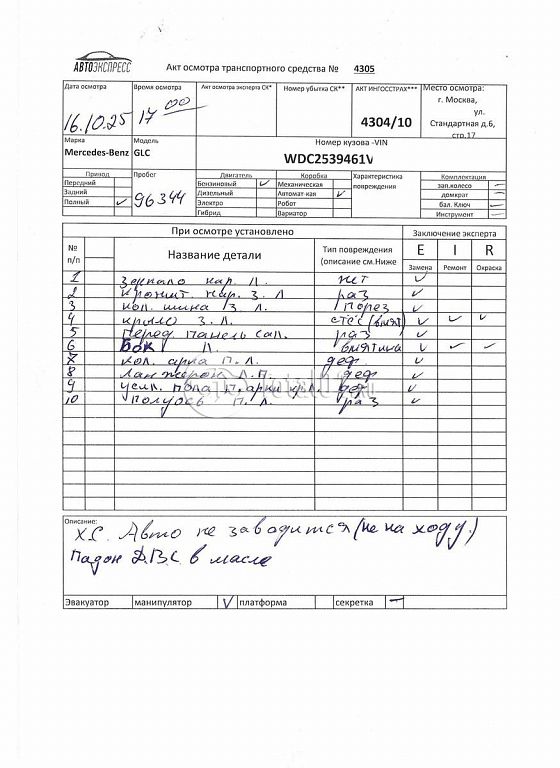 АВТОЭКСПРЕСС
Акт осмотра транспортного средства № 4305
Дата осмотра Время осмотра Акт осмотра эксперта СК* Номер убытка СК** АКТ ИНГОССТРАХ*** Место осмотра:
16.10.25 17 00 4304/10 г. Москва, ул. Стандартная д.6, стр.17
Марка Модель Номер кузова -VIN
Mercedes-Benz GLC WDC2539461V
Привод Пробег Двигатель Коробка Характеристика повреждения Комплектация
Передний 96344 Бензиновый ✓ Механическая зап.колесо –
Задний Дизельный Автомат-кая ✓ домкрат –
Полный ✓ Электро Робот бал. Ключ –
Гибрид Вариатор Инструмент –
При осмотре установлено Заключение эксперта
№ п/п Название детали Тип повреждения (описание см.Ниже E I R
Замена Ремонт Окраска
1 Зеркало нар. Л. нет ✓
2 Кроншт. нар. З. Л раз ✓
3 кол. шина З. Л. порез ✓
4 крыло З. Л. ✓ ✓ ✓
5 Перед. панель сал. раз ✓
6 Бок Л. вмятина ✓ – –
7 кол. арка П. Л. деф ✓
8 Лонжерон Л.П. деф ✓
9 усил. пола П. арки кр.Л. деф ✓
10 Полуось П. Л. раз ✓
Описание:
Х.С. Авто не заводится (не на ходу.)
Падон Д.В.С. в масле
Эвакуатор манипулятор ✓ платформа секретка –